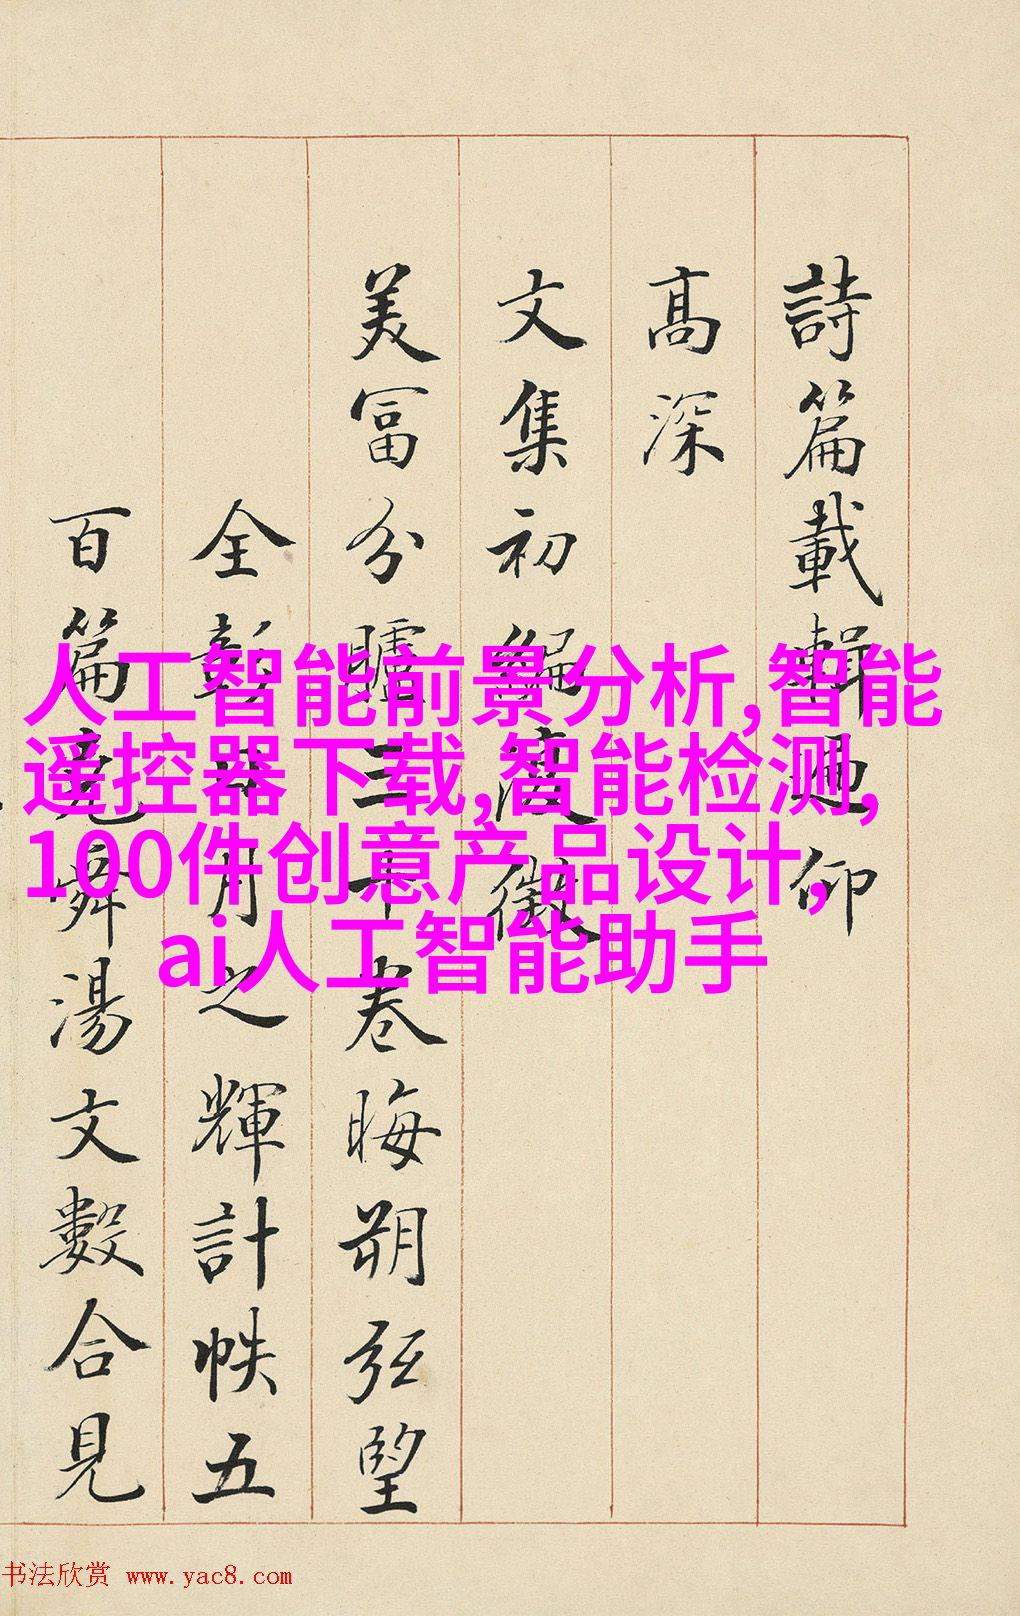 詩篇載輯仰
高深
文集初編復徵
美富分臚三十卷晦朔弦望
全彰日月之輝計帙五
百篇堯舜湯文數合見
人工智能前景分析,智能
遥控器下载,智能检测,
100件创意产品设计,
ai人工智能助手
书法欣赏 www.yac8.com